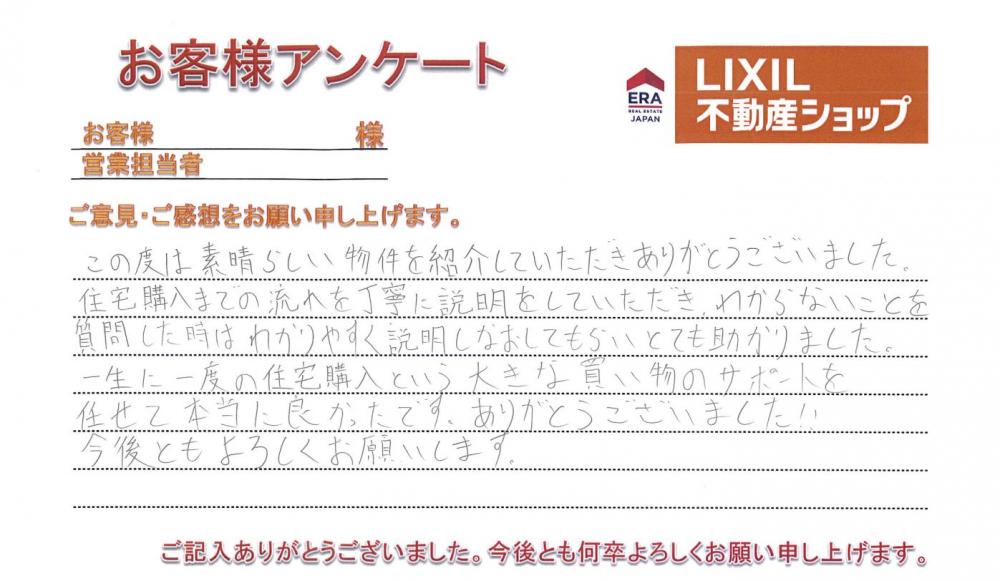 お客様アンケート
ERA
REAL ESTATE
JAPAN
LIXIL
不動産ショップ
お客様 様
営業担当者
ご意見・ご感想をお願い申し上げます。
この度は素晴らしい物件を紹介していただきありがとうございました。
住宅購入までの流れを丁寧に説明をしていただき、わからないことを
質問した時はわかりやすく説明しなおしてもらいとても助かりました。
一生に一度の住宅購入という大きな買い物のサポートを
任せて本当に良かったです。ありがとうございました!!
今後ともよろしくお願いします。
ご記入ありがとうございました。今後とも何卒よろしくお願い申し上げます。